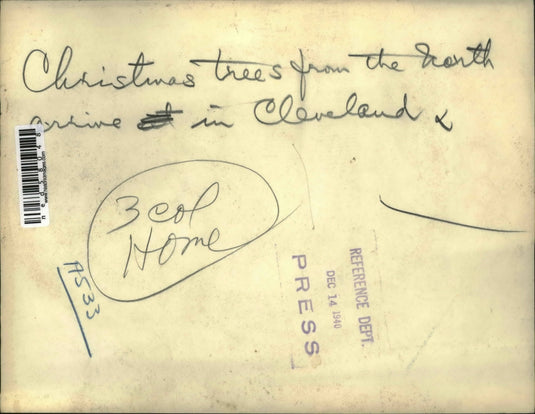 Christmas trees from the North
arrive in Cleveland
3 col
Home
A533
REFERENCE DEPT.
DEC 14 1940
PRESS